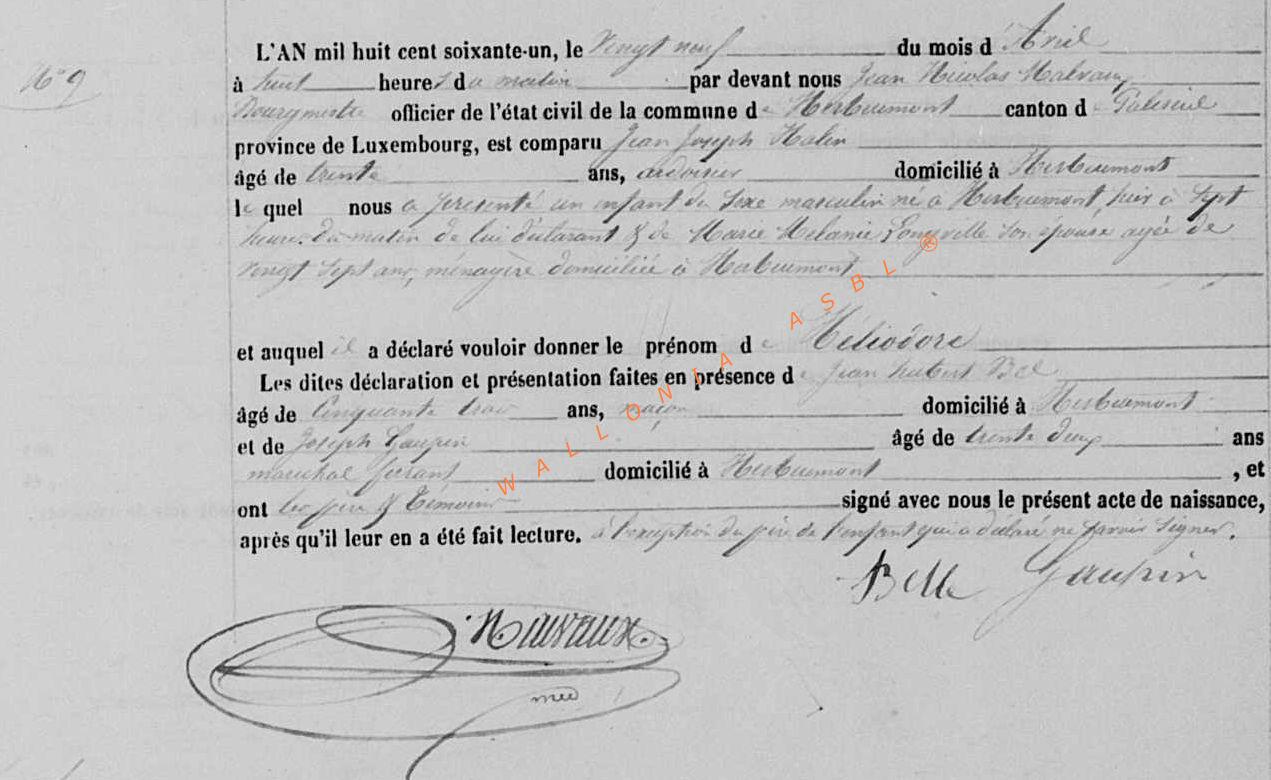 N° 9
L'AN mil huit cent soixante-un, le Vingt neuf du mois d'Avril
à huit heures du matin par devant nous Jean Nicolas
Bourgmestre officier de l'état civil de la commune de Herbeumont canton de Paliseul
province de Luxembourg, est comparu Jean Joseph Halin
âgé de trente ans, ardoisier domicilié à Herbeumont
le quel nous a présenté un enfant du sexe masculin né à Herbeumont, hier à Sept
heures du matin de lui déclarant & de Marie Mélanie son épouse, agée de
vingt sept ans, ménagère domiciliée à Herbeumont
et auquel il a déclaré vouloir donner le prénom de Héliodore
Les dites déclaration et présentation faites en présence de Jean hubert
âgé de Cinquante trois ans, maçon domicilié à Herbeumont
et de Joseph Gaupin âgé de trente deux ans
maréchal ferrant domicilié à Herbeumont, et
ont les témoins signé avec nous le présent acte de naissance,
après qu'il leur en a été fait lecture. à l'exception du père de l'enfant qui a déclaré ne savoir signer.
Gaupin
WALLONIA ASBL ®